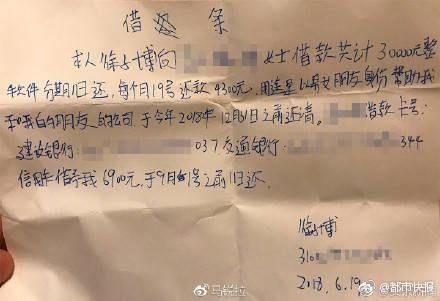 借条
本人徐上博向 女士借款共计30000元整
软件分期归还,每月19号还款4300元,用途是以男女朋友身份帮助我
和 的朋友的公司于今年2018年12月31日之前还清。 借款卡号:
建设银行: 037 交通银行: 344
信用卡借予我6900元,于9月 号之前归还.
徐上博
310
2018.6.19
马锐拉
@都市快报